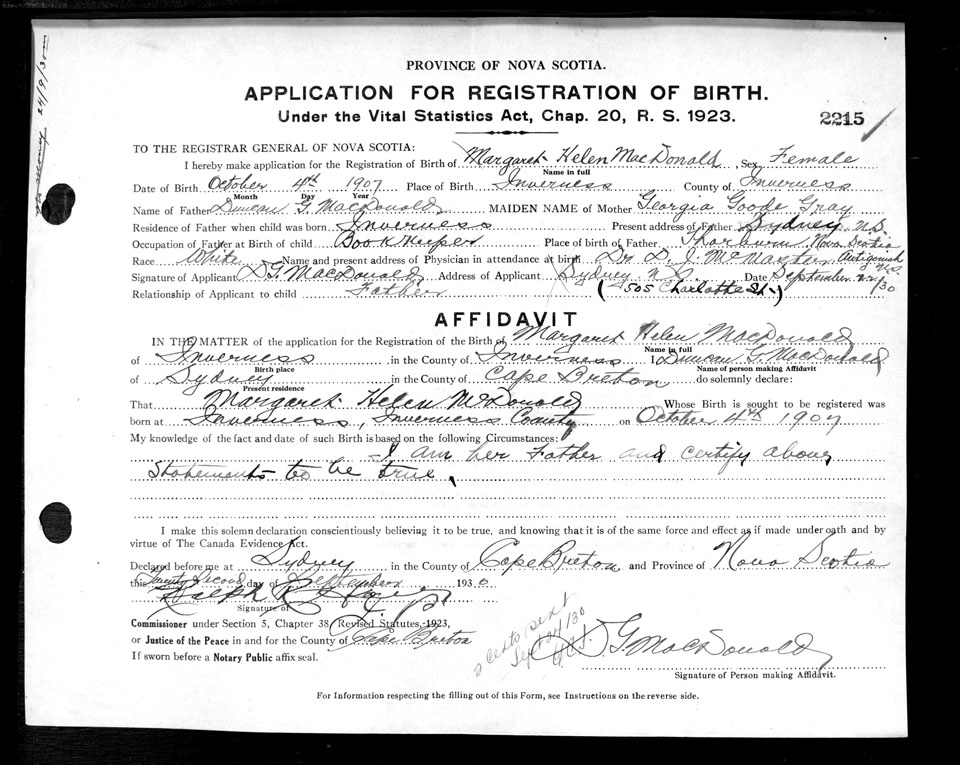 PROVINCE OF NOVA SCOTIA.
APPLICATION FOR REGISTRATION OF BIRTH.
Under the Vital Statistics Act, Chap. 20, R. S. 1923.
2215
24/9/30
TO THE REGISTRAR GENERAL OF NOVA SCOTIA:
I hereby make application for the Registration of Birth of Margaret Helen MacDonald, Sex Female
Name in full
Date of Birth October 4th 1907 Place of Birth Inverness County of Inverness
Month Day Year
Name of Father Duncan G. MacDonald MAIDEN NAME of Mother Georgia Goode Gray
Residence of Father when child was born Inverness Present address of Father Sydney, N.S.
Occupation of Father at Birth of child Book Keeper Place of birth of Father Thorburn, Nova Scotia
Race White Name and present address of Physician in attendance at birth Dr. D. J. McMaster, Antigonish N.S.
Signature of Applicant D G. MacDonald Address of Applicant Sydney N S Date September 22/30
Relationship of Applicant to child Father (505 Charlotte St.)
AFFIDAVIT
IN THE MATTER of the application for the Registration of the Birth of Margaret Helen MacDonald
Name in full
of Inverness in the County of Inverness I, Duncan G. MacDonald
Birth place Name of person making Affidavit
of Sydney in the County of Cape Breton do solemnly declare:
Present residence
That Margaret Helen McDonald Whose Birth is sought to be registered was
born at Inverness, Inverness County on October 4th 1907
My knowledge of the fact and date of such Birth is based on the following Circumstances:
I am her Father and certify above
Statements to be true.
I make this solemn declaration conscientiously believing it to be true, and knowing that it is of the same force and effect as if made under oath and by
virtue of The Canada Evidence Act.
Declared before me at Sydney in the County of Cape Breton and Province of Nova Scotia
this Twenty Second day of September 1930.
Ralph
Signature of
Commissioner under Section 5, Chapter 38, Revised Statutes, 1923,
or Justice of the Peace in and for the County of Cape Breton
If sworn before a Notary Public affix seal.
Sept 24/30
D G MacDonald
Signature of Person making Affidavit.
For Information respecting the filling out of this Form, see Instructions on the reverse side.